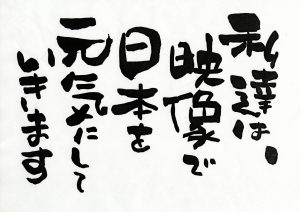 私達は、
映像で
日本を
元気にして
いきます